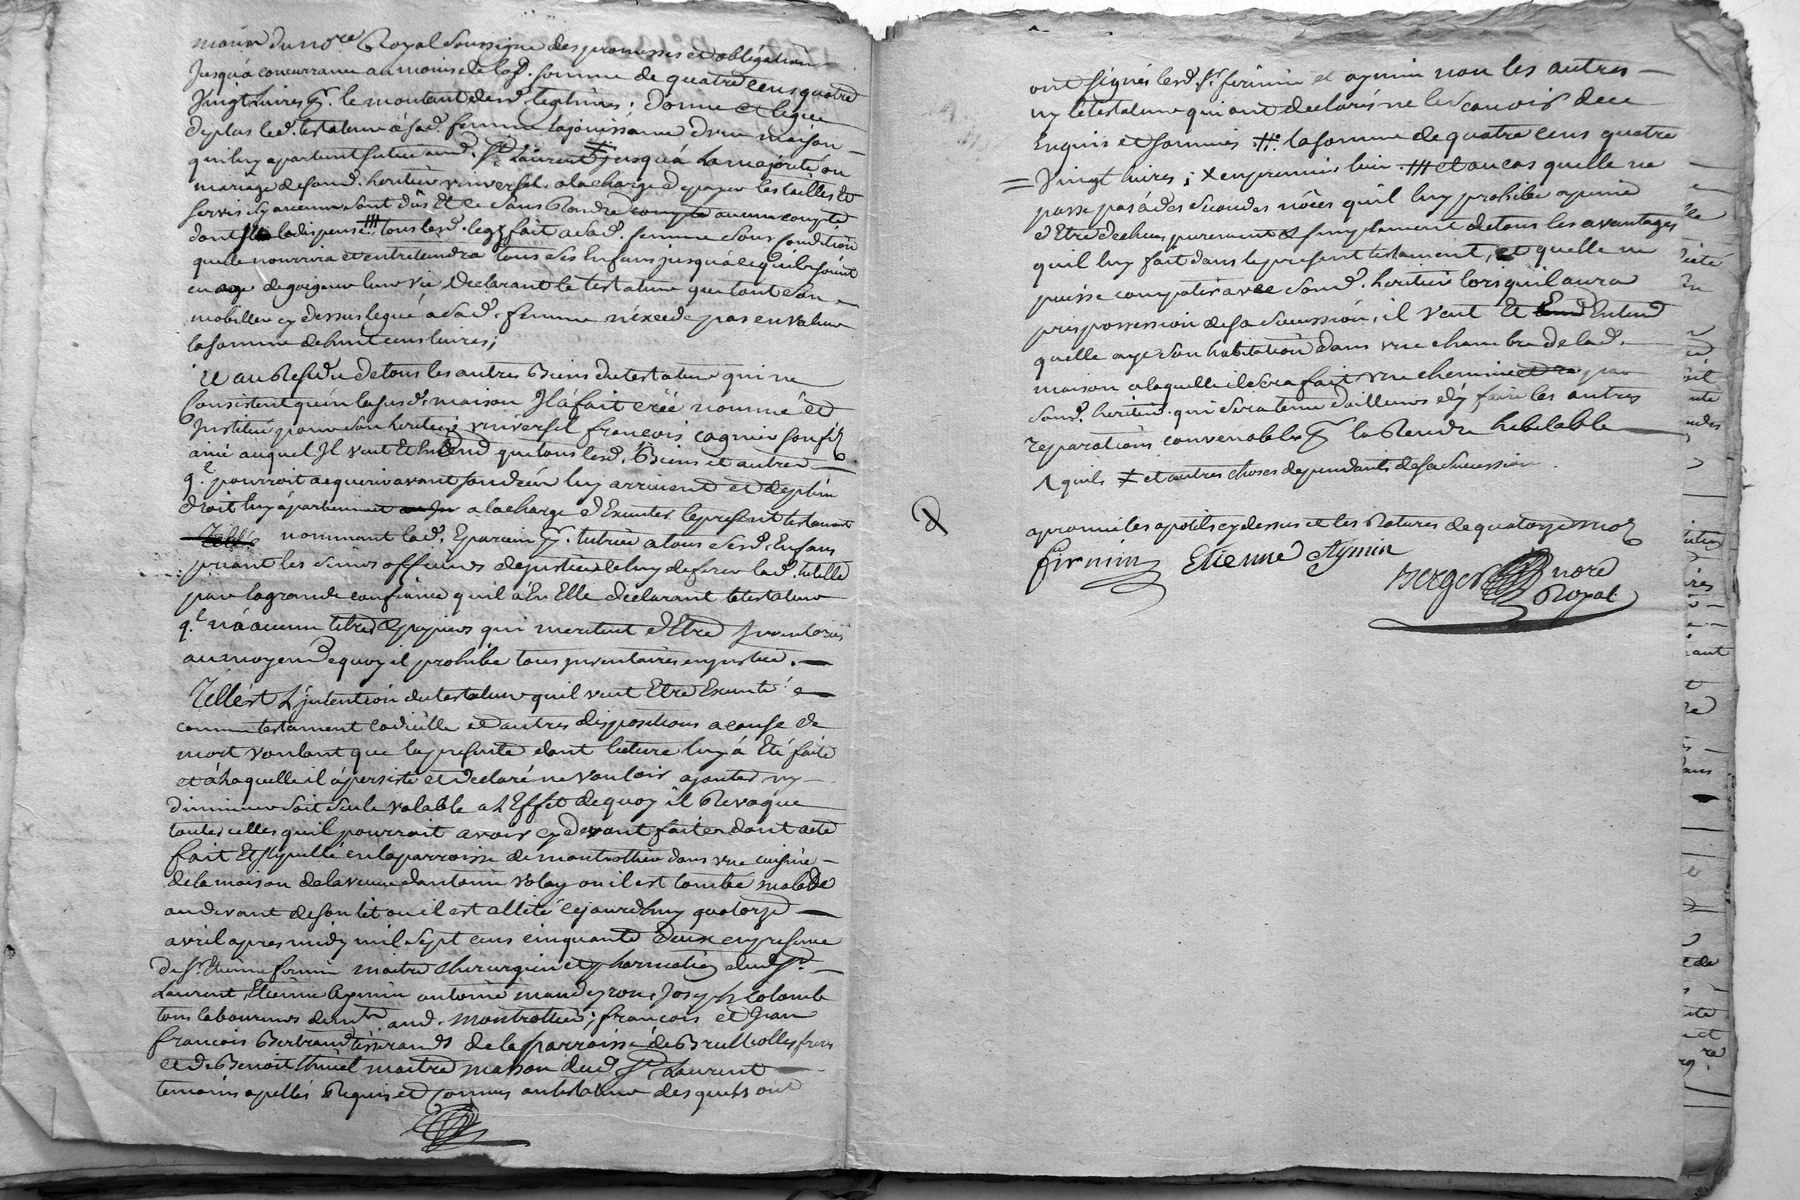 mains du no.re Royal soussigné des promesses et obligations
Jusqu'a concurrance au moins de lad. somme de quatre cens quatre
vingt livres p.r le montant desd. legitimes ; donne et legue
de plus led. testateur á sad. femme la jouissance d'une maison
qui luy apartient située aud. S.t Laurent jusqu'á la majorité ou
mariage de sond. heritier vniversel a la charge de payer les tailles et
servis sy aucuns sont dûs Et ce sans Rendre compte aucun compte
dont il la dispense tous lesd. legs fait a lad. femme sous condition
quelle nourrira et entretiendra tous ses Enfans jusqu'a ce qu'ils soint
en age de gaigner leur vie, Declarant le testateur que tout son
mobillier cy dessus legué á sad. femme n'éxcede pas en valeur
la somme de huit cens livres ;
Et au Residu de tous les autres Biens du testateur qui ne
Consistent qu'en la susd. maison Il a fait créé nommé et
Institué pour son heritier vniversel françois cagnier son fils
ainé auquel Il veut Et Entend que tous lesd. Biens et autres
q.l pourroit acquerir avant son décés luy arrivent et de plein
droit luy apartiennent a la charge d'Exécuter le present testament
nommant lad. Eparcieu p.r tutrice a tous sesd. Enfans
priant les sieurs officiers de justice de luy deferer lad. tutelle
par la grande confiance qu'il á En Elle declarant le testateur
q.l n'a aucun titres & papiers qui meritent d'Etre Inventoriés
au moyen de quoy il prohibe tous jnventaires en justice.
Telle est L'jntention du testateur qu'il veut Etre Executé
comme testament codicille et autres dispositions a cause de
mort voulant que la presente dont lecture luy á Eté faite
et á laquelle il á persisté et declaré ne vouloir ajouter ny
diminuer soit seule valable a L'Effet de quoy il Revoque
toutes celles qu'il pourroit avoir cy devant faites dont acte
fait Et stipullé en la parroisse de montrottier dans vne cuisine
de la maison de la veuve d'antoine Volay ou il est tombé malade
au devant de son lit ou il est allité cejourd'huy quatorze
avril apres midy mil sept cens cinquante deux en presence
de S.r Etienne firmin maitre chirurgien et pharmatien dud. S.t
Laurent, Etienne Aymin antoine mandeyron, Joseph Colomb
tous laboureurs demt.s aud. montrottier ; françois et Jean
françois Bertrand tisserands de la parroisse de Brullolles freres
et de Benoit thiviel maitre masson dud. S.t Laurent
temoins apellés Requis et Connus au testateur desquels ont
ont signés lesd. S.r firmin et aymin non les autres
ny le testateur qui ont declarés ne le scavoir de ce
Enquis et sommés. # la somme de quatre cens quatre
vingt livres ; X en premier lieu # et au cas quelle ne
passe pas á des secondes nôces qu'il luy prohibe apeine
d'Etre dechue purement & simplement de tous les avantages
qu'il luy fait dans le present testament, et quelle ne
puisse compatir avec sond. heritier lorsquil aura
pris possession de sa succession, il veut Et Entend
quelle aye son habitation dans vne chambre de lad.
maison a laquelle il sera fait vne cheminée par
sond. heritier qui sera tenu d'ailleurs d'y faire les autres
reparations convenables p.r la Rendre habitable
qu'ils X et autres choses dependants de sa succession
aprouvé les apostils cy dessus et les Ratures de quatorze mots
firmin Etienne Aymin
Berger nore
Royal